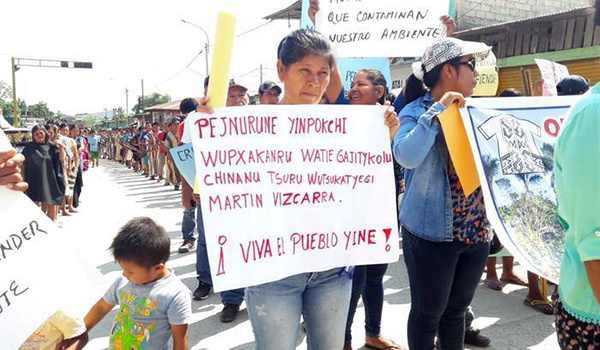 QUE CONTAMINAN
NUESTRO AMBIENTE
PEJNURUNE YINPOKCHI
WUPXAKANRU WATIE GAJITYKOLU
CHINANU TSURU WUTSUKATYEGI
MARTIN VIZCARRA.
¡ VIVA EL PUEBLO YINE !